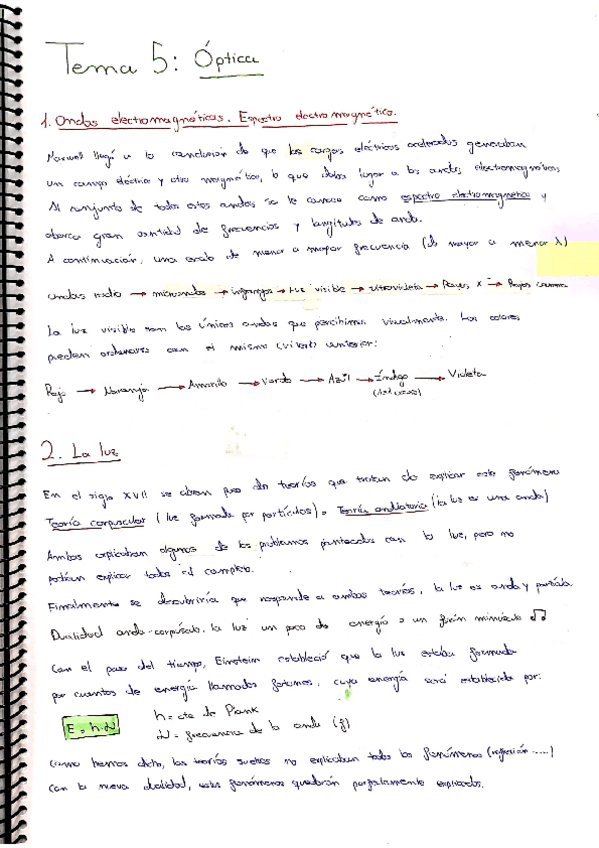 Tema 5: Óptica
1. Ondas electromagnéticas. Espectro electromagnético.
Maxwell llegó a la conclusión de que las cargas eléctricas aceleradas generaban
un campo eléctrico y otro magnético, lo que daba lugar a las ondas electromagnéticas,
Al conjunto de todas estas ondas se le conoce como espectro electromagnético y
abarca gran cantidad de frecuencias y longitudes de onda.
A continuación, una escala de menor a mayor frecuencia (de mayor a menor λ)
ondas radio → microondas → infrarrojos → Luz visible → ultravioleta → Rayos X → Rayos Gamma
La luz visible son las únicas ondas que percibimos visualmente. Los colores
pueden ordenarse con el mismo anterior:
Rojo → Naranja → Amarillo → Verde → Azul → Índigo → Violeta
2. La luz
En el siglo XVII se daban dos teorías que tratan de explicar este fenómeno
Teoría corpuscular (luz formada por partículas) o Teoría ondulatoria (la luz es una onda)
Ambas explicaban algunos de los problemas planteados con la luz, pero no
podían explicar todo al completo.
Finalmente se descubriría que responde a ambas teorías, la luz es onda y partícula
Dualidad onda-corpúsculo. la luz un poco de energía o un
Con el paso del tiempo, Einstein estableció que la luz estaba formada
por cuantos de energía llamados fotones, cuya energía será establecida por:
E = h·ν
h = cte de Plank
ν = frecuencia de la onda (f)
como hemos dicho, las teorías sueltas no explicaban todos los fenómenos (refracción ....)
Con la nueva dualidad, estos fenómenos quedarán perfectamente explicados.